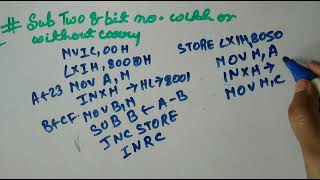 # Sub Two 8 bit no. with or
without carry
MVI C, 00 H
LXI H, 8000 H
A ← 23 MOV A, M
INX H → HL → 8001
B ← CF MOV B, M
SUB B ← A - B
JNC STORE
INR C
STORE LXI H, 8050
MOV M, A
INX H →
MOV M, C